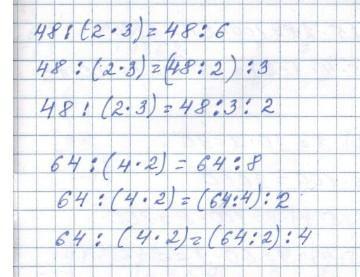 48:(2·3)=48:6
48:(2·3)=(48:2):3
48:(2·3)=48:3:2
64:(4·2)=64:8
64:(4·2)=(64:4):2
64:(4·2)=(64:2):4